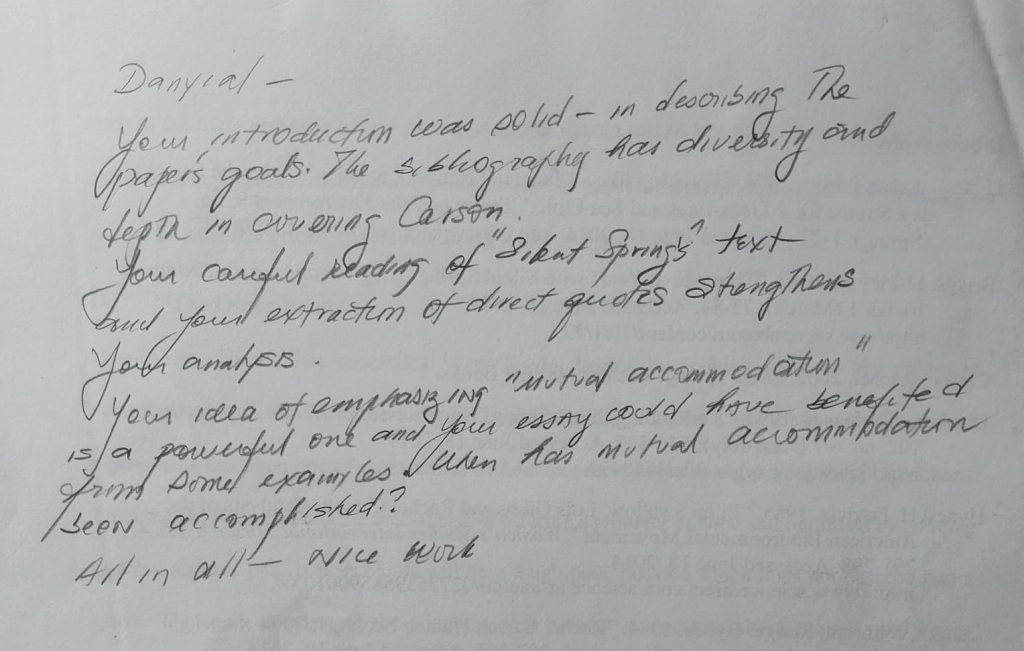 Danyial –
Your introduction was solid – in describing The
paper's goals. The bibliography has diversity and
depth in covering Carson.
Your careful reading of "Silent Spring's" text
and your extraction of direct quotes strengthens
Your analysis.
Your idea of emphasizing "mutual accommodation"
is a powerful one and your essay could have benefited
from some examples. When has mutual accommodation
been accomplished.?
All in all – Nice work